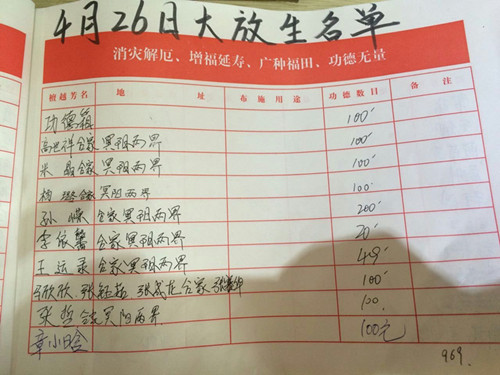 4月26日大放生名单
消灾解厄、增福延寿、广种福田、功德无量
檀越芳名 地 址 布施用途 功德数目 备 注
功德箱 100
高世祥合家冥阳两界 100
米晶合家冥阳两界 100
杨 合家冥阳两界 100
孙 合家冥阳两界 200
李依馨合家冥阳两界 20
王运录合家冥阳两界 49
欣欣 张 张 合家 100
张哲合家冥阳两界 100
章小晗 100元
969